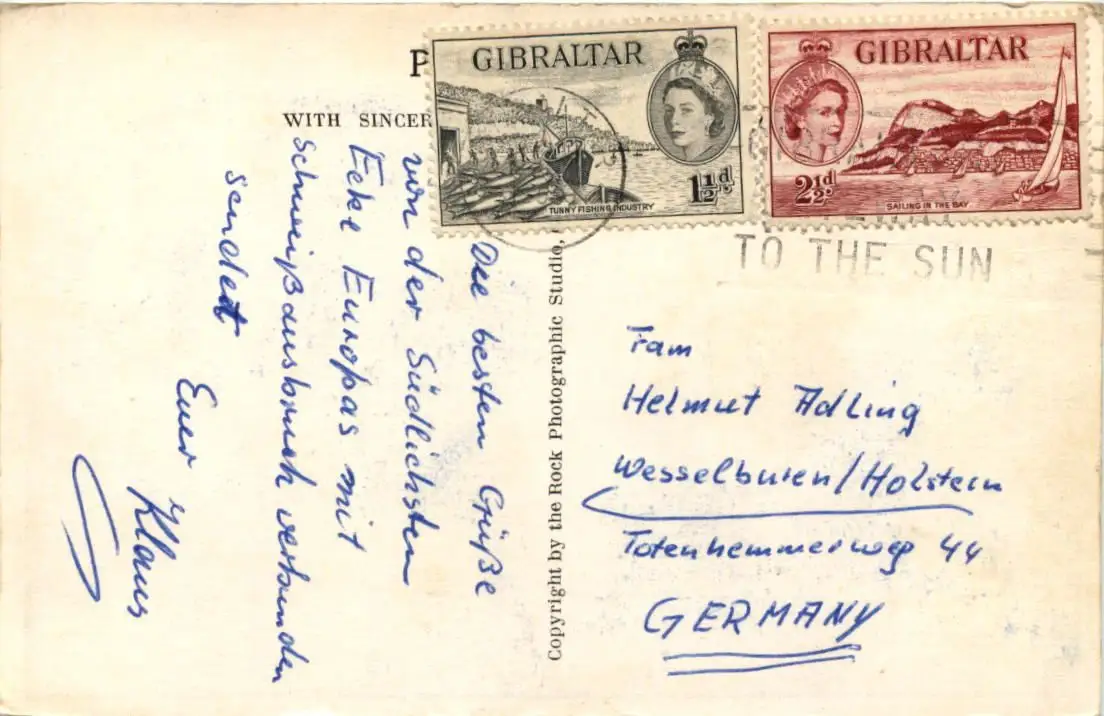 GIBRALTAR
TUNNY FISHING INDUSTRY
1½d
GIBRALTAR
2½d
SAILING IN THE BAY
TO THE SUN
P
WITH SINCER
Die besten Grüße
von der Südlichsten
Ecke Europas mit
Schweißausbruch verbunden
sendet
Euer
Klaus
Copyright by the Rock Photographic Studio,
Fam
Helmut Adling
Wesselburen/Holstein
Totenhemmerweg 44
GERMANY